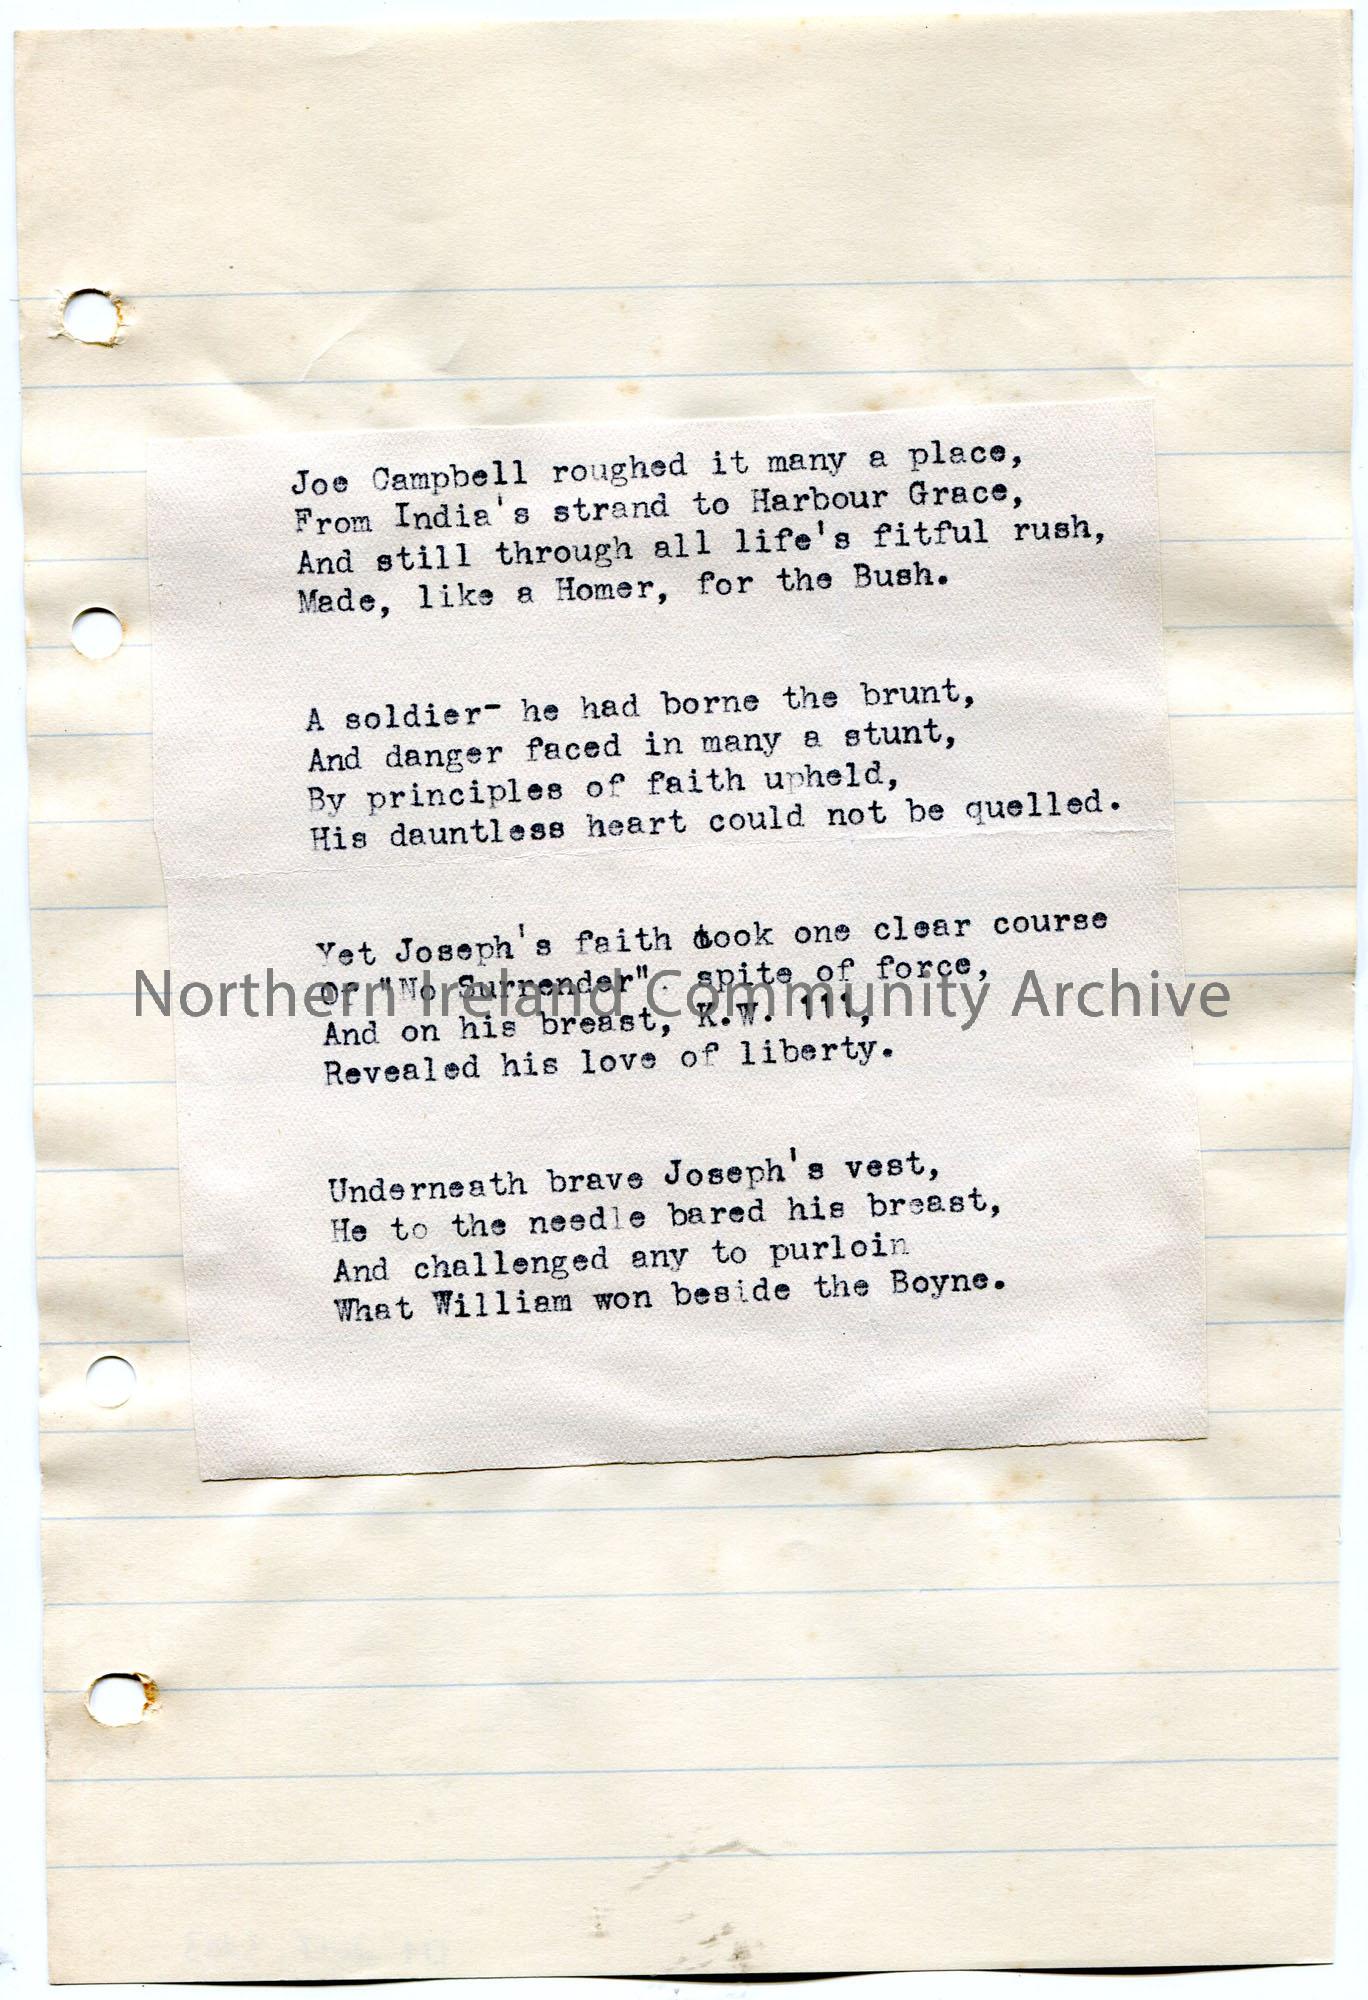 Joe Campbell roughed it many a place,
From India's strand to Harbour Grace,
And still through all life's fitful rush,
Made, like a Homer, for the Bush.
A soldier- he had borne the brunt,
And danger faced in many a stunt,
By principles of faith upheld,
His dauntless heart could not be quelled.
Yet Joseph's faith took one clear course
Of "No Surrender". spite of force,
Northern Ireland Community Archive
And on his breast, K.W. 111,
Revealed his love of liberty.
Underneath brave Joseph's vest,
He to the needle bared his breast,
And challenged any to purloin
What William won beside the Boyne.